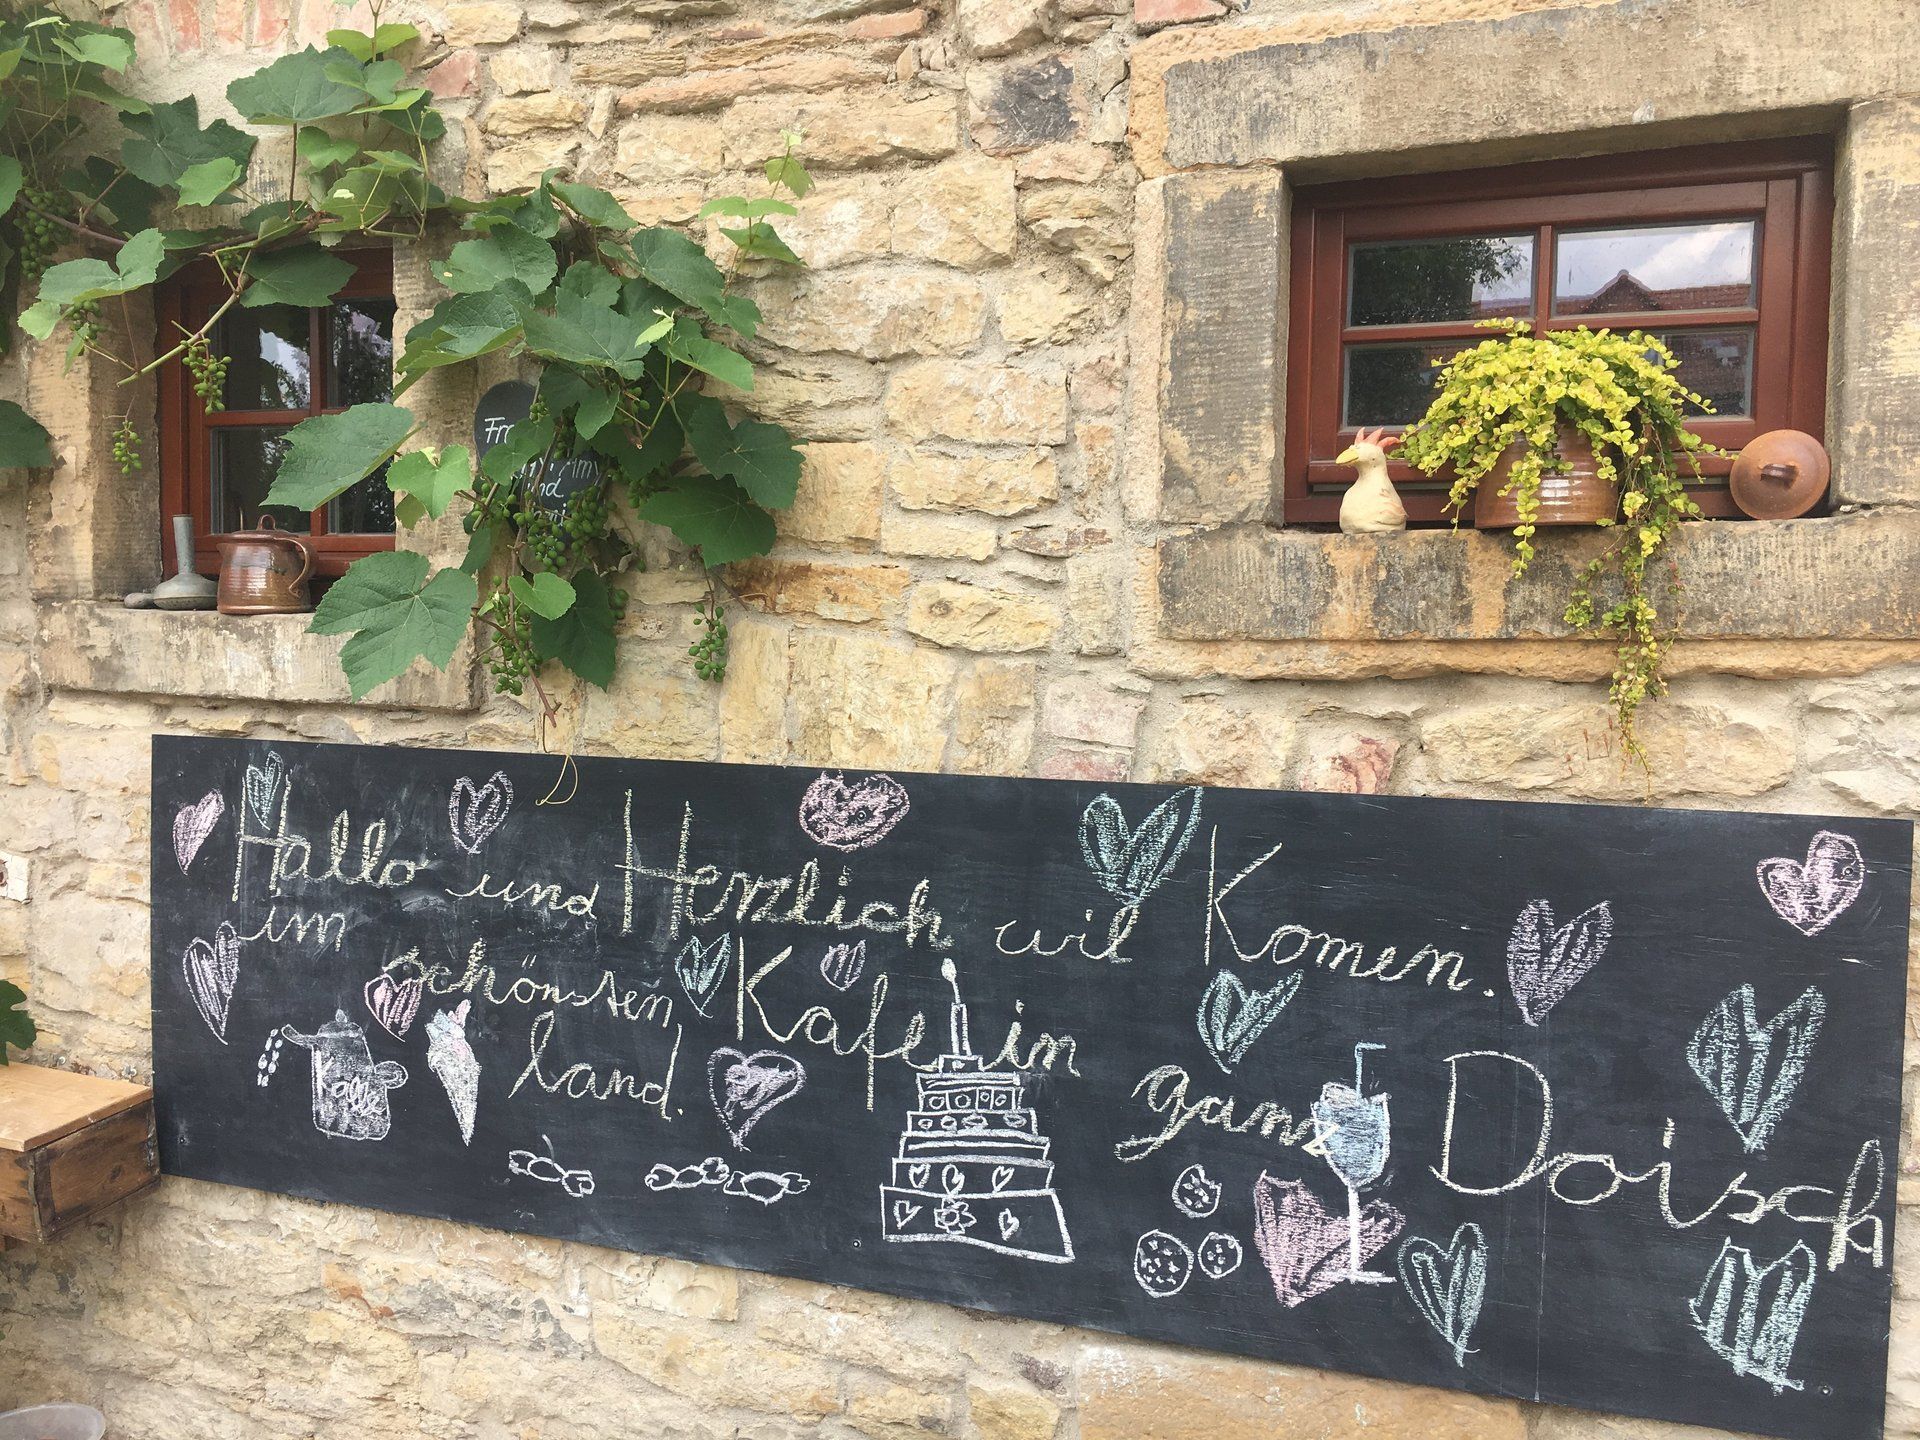 Hallo und Herzlich wil Komen.
im schönsten Kafe in ganz Doisch
land.
Kaffe
und